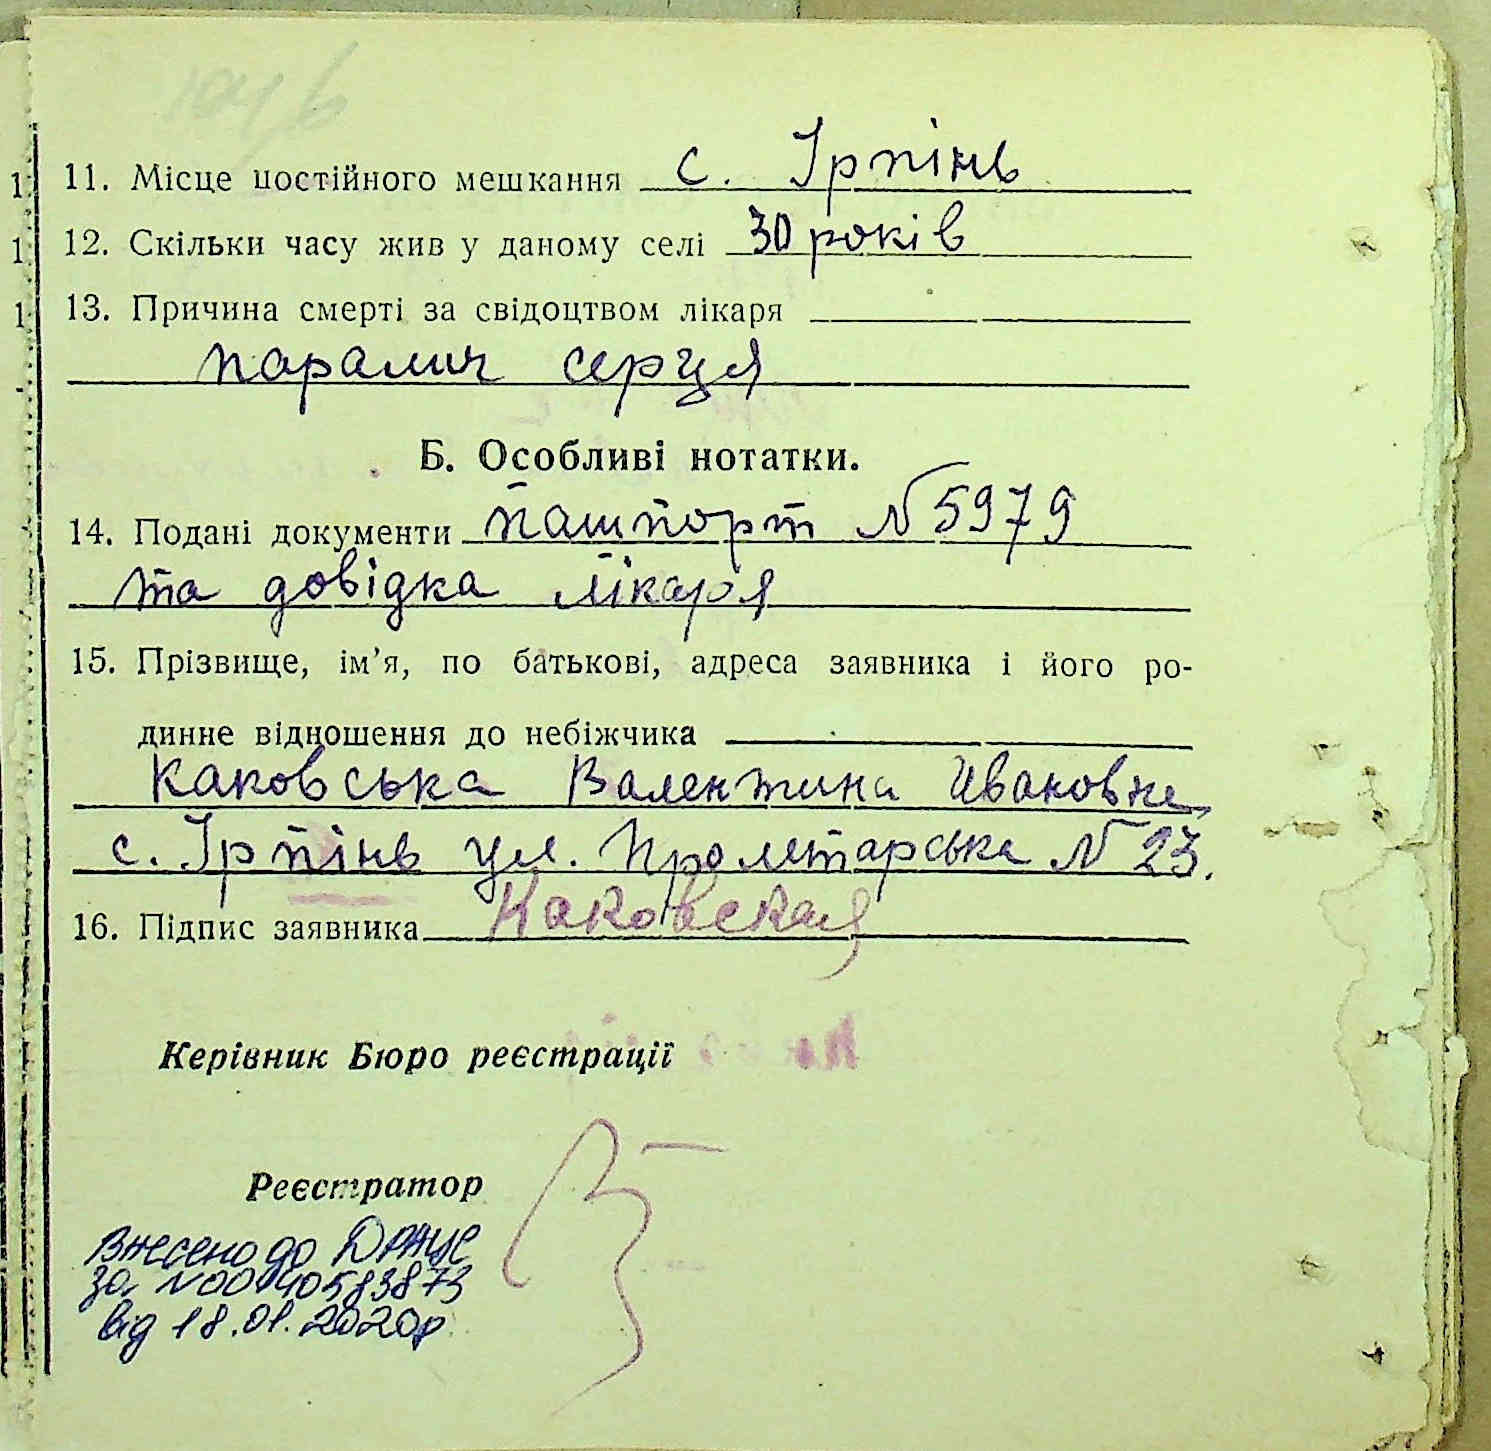 11. Місце постійного мешкання с. Ірпінь
12. Скільки часу жив у даному селі 30 років
13. Причина смерті за свідоцтвом лікаря
паралич серця
Б. Особливі нотатки.
14. Подані документи пашпорт N 5979
та довідка лікаря
15. Прізвище, ім’я, по батькові, адреса заявника і його ро-
динне відношення до небіжчика
Каковська Валентина Ивановна
с. Ірпінь ул. Пролетарська N 23.
16. Підпис заявника Каковская
Керівник Бюро реєстрації
Реєстратор
Внесено до ДРАЦС
за N00040583873
від 18.01.2020р.